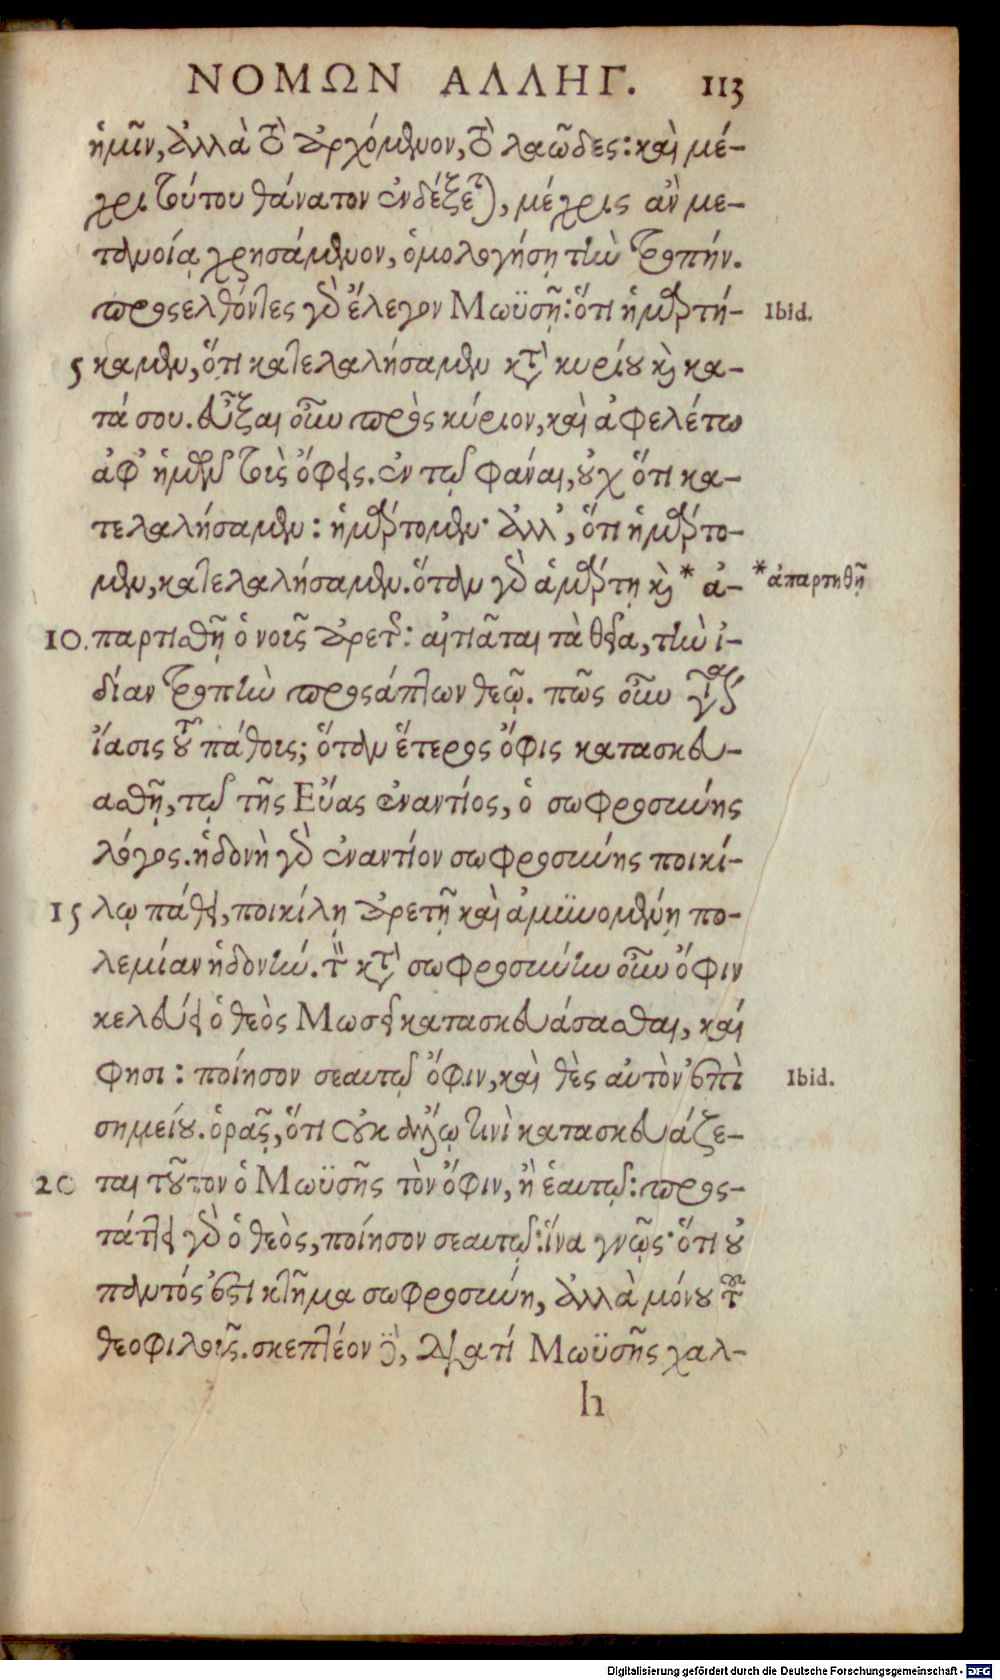 ΝΟΜΩΝ ΑΛΛΗΓ. 113
ἡμῖν, ἀλλὰ τὸ ἀρχόμενον, τὸ λαῶδες: καὶ μέ-
χρι τούτου θάνατον ἐνδέξεται, μέχρις ἂν με-
τανοίᾳ χρησάμενον, ὁμολογήσῃ τὴν τροπήν.
προσελθόντες γὰρ ἔλεγον Μωϋσῇ: ὅτι ἡμαρτή- Ibid.
5 καμεν, ὅτι κατελαλήσαμεν κατὰ κυρίου καὶ κα-
τά σου. εὖξαι οὖν πρὸς κύριον, καὶ ἀφελέτω
ἀφ' ἡμῶν τοὺς ὄφεις. ἐν τῷ φάναι, οὐχ ὅτι κα-
τελαλήσαμεν: ἡμάρτομεν· ἀλλ', ὅτι ἡμάρτο-
μεν, κατελαλήσαμεν. ὅταν γὰρ ἁμάρτῃ καὶ * ἀ- *ἀπαρτηθῇ
10. παρτισθῇ ὁ νοῦς ἀρετῆς: αἰτιᾶται τὰ θεῖα, τὴν ἰ-
δίαν τροπὴν προσάπτων θεῷ. πῶς οὖν γίνεται
ἴασις τοῦ πάθους; ὅταν ἕτερος ὄφις κατασκευ-
ασθῇ, τῷ τῆς Εὔας ἐναντίος, ὁ σωφροσύνης
λόγος. ἡδονὴ γὰρ ἐναντίον σωφροσύνης ποικί-
15 λῳ πάθει, ποικίλῃ ἀρετῇ καὶ ἀμϋνομένῃ πο-
λεμίαν ἡδονήν. τὸν κατὰ σωφροσύνην οὖν ὄφιν
κελεύει ὁ θεὸς Μωσεῖ κατασκευάσασθαι, καί
φησι: ποίησον σεαυτῷ ὄφιν, καὶ θὲς αὐτὸν ἐπὶ Ibid.
σημείου. ὁρᾷς, ὅτι οὐκ ἄλλῳ τινὶ κατασκευάζε-
20 ται τοῦτον ὁ Μωϋσῆς τὸν ὄφιν, ἢ ἑαυτῷ: προσ-
τάττει γὰρ ὁ θεὸς, ποίησον σεαυτῷ: ἵνα γνῷς· ὅτι οὐ
παντός ἐστι κτῆμα σωφροσύνη, ἀλλὰ μόνου τοῦ
θεοφιλοῦς. σκεπτέον δὲ, διατί Μωϋσῆς χαλ-
h
Digitalisierung gefördert durch die Deutsche Forschungsgemeinschaft - DFG